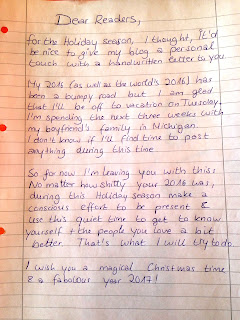 Dear Readers,
for the Holiday season, I thought, it'd
be nice to give my blog a personal
touch with a handwritten letter to you.
My 2016 (as well as the world's 2016) has
been a bumpy road but I am glad
that I'll be off to vacation on Tuesday.
I'm spending the next three weeks with
my boyfriend's family in Michigan.
I don't know if I'll find time to post
anything during this time.
So for now I'm leaving you with this:
No matter how shitty your 2016 was,
during this Holiday season make a
conscious effort to be present &
use this quiet time to get to know
yourself + the people you love a bit
better. That's what I will try to do.
I wish you a magical Christmas time
& a fabolous year 2017!